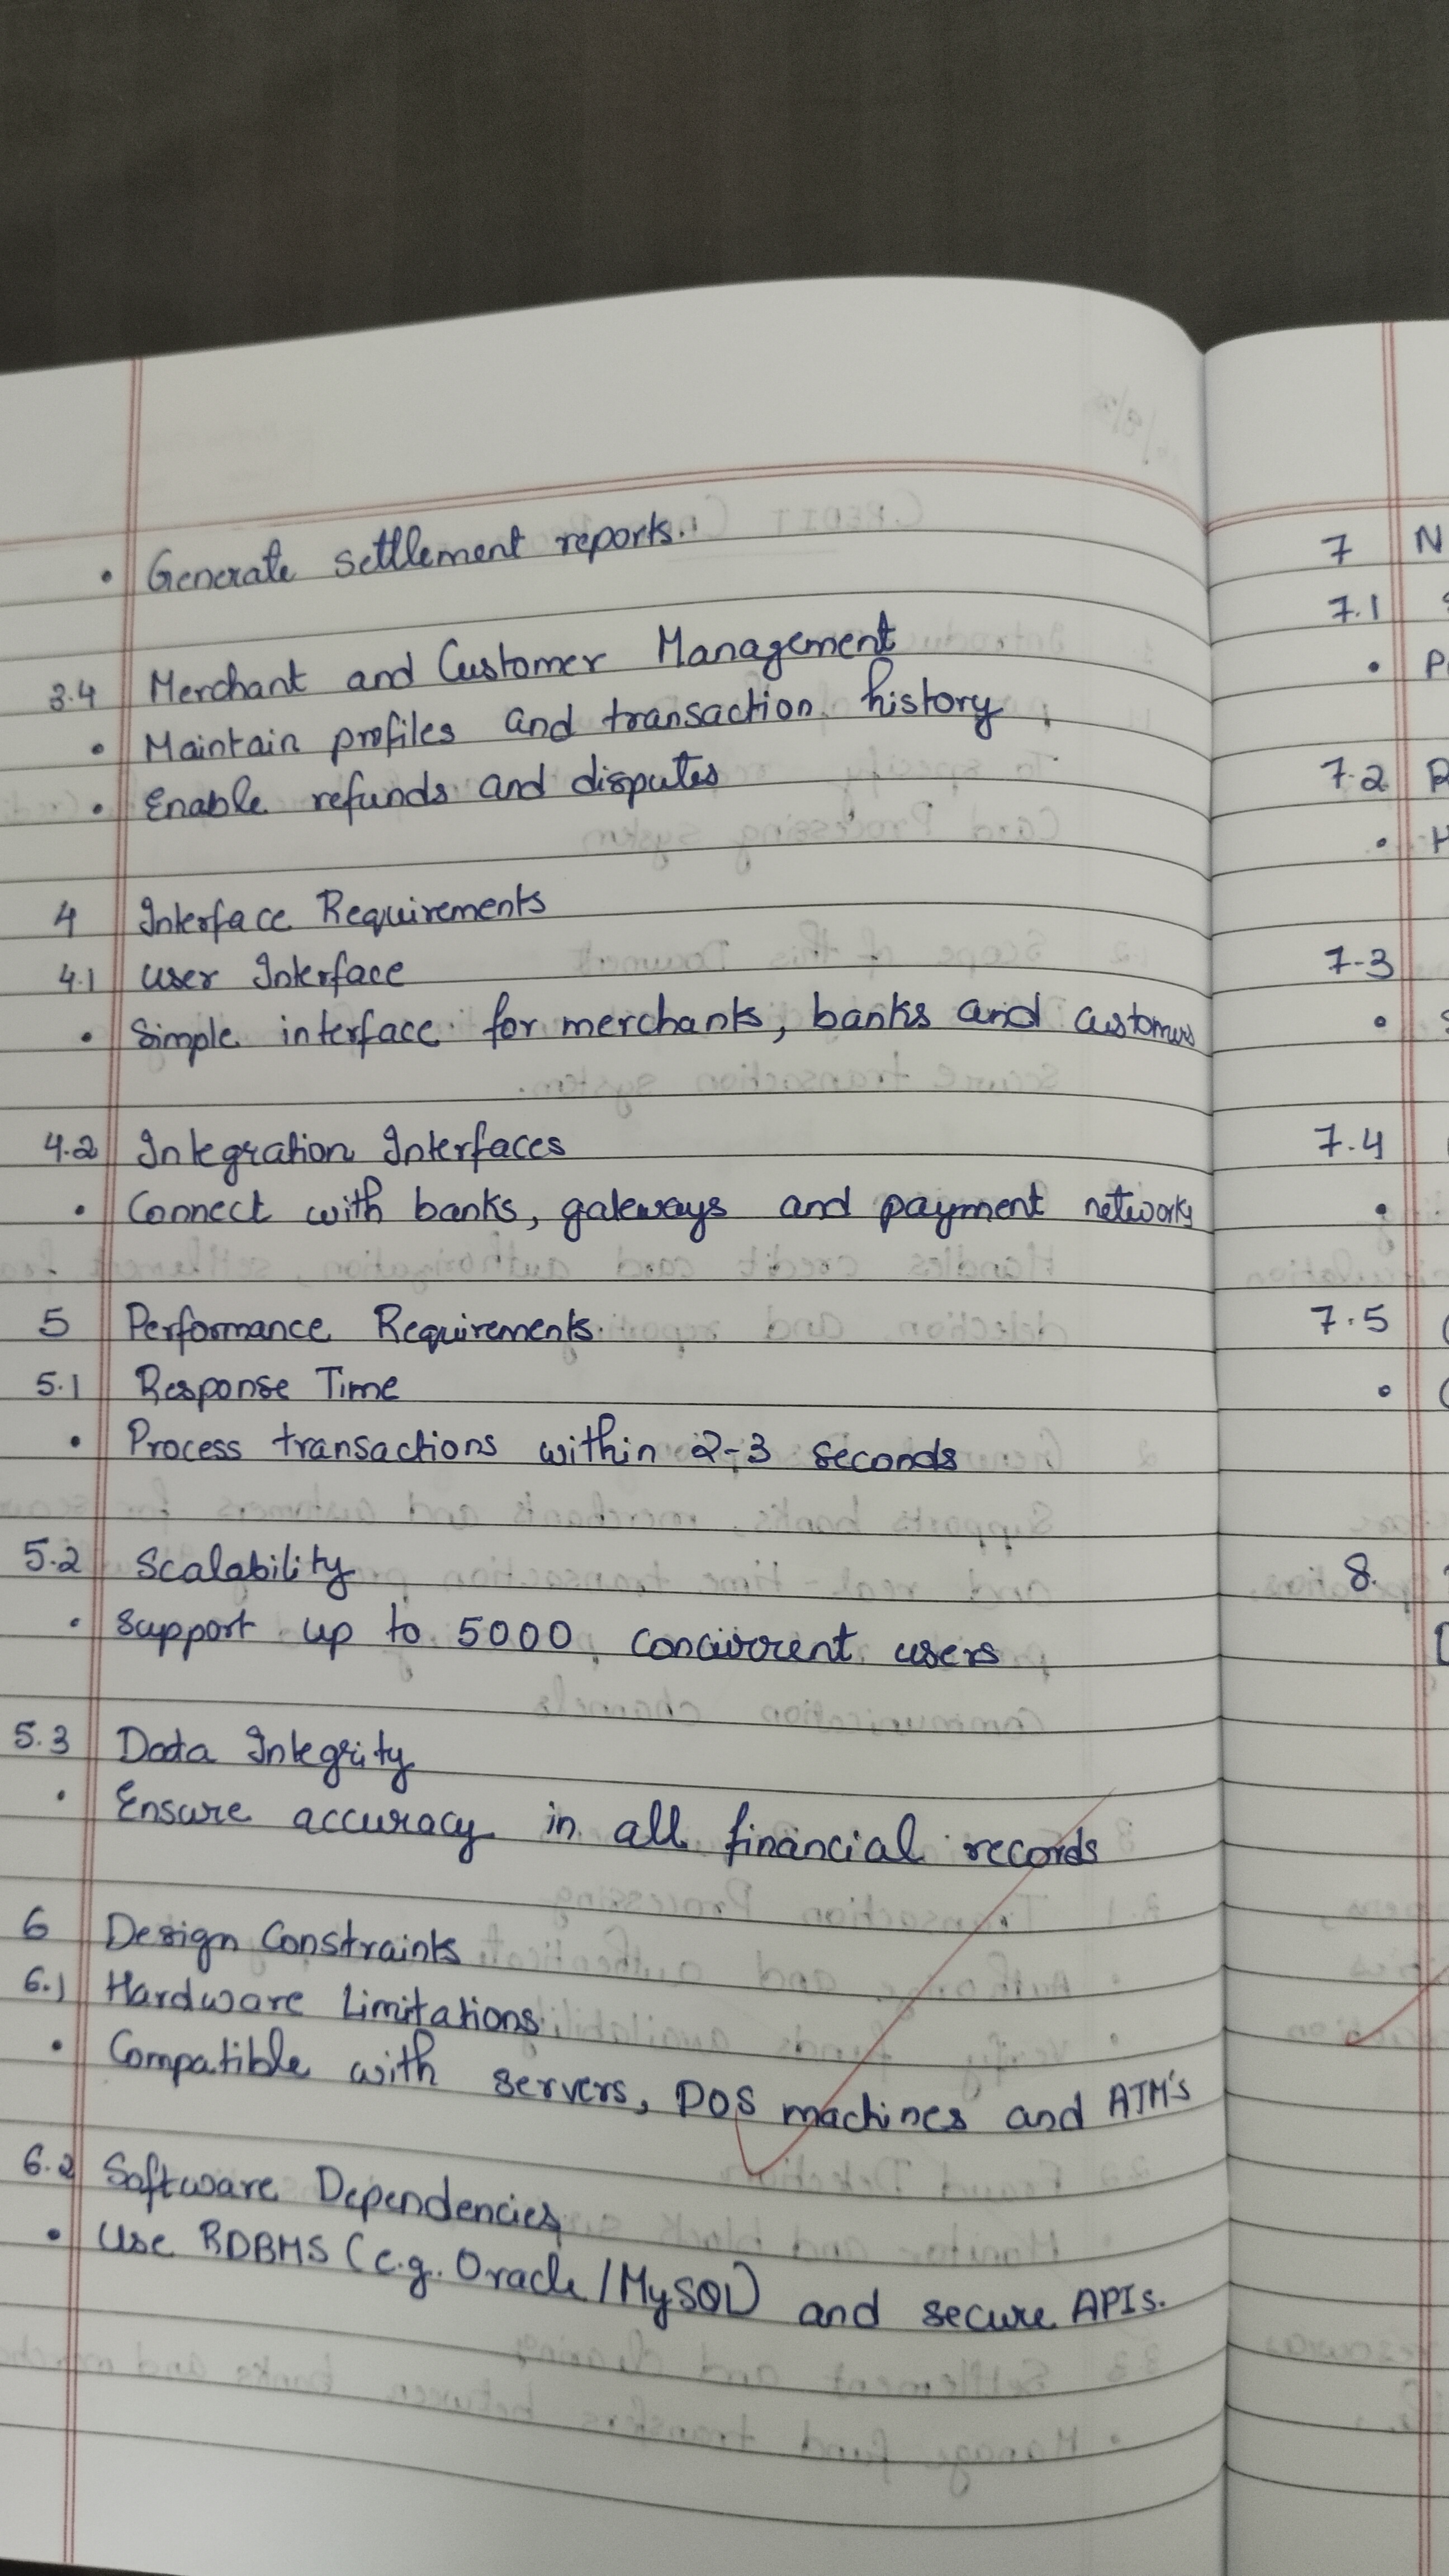 • Generate settlement reports.
3.4 Merchant and Customer Management
• Maintain profiles and transaction history
• Enable refunds and disputes
4 Interface Requirements
4.1 User Interface
• Simple interface for merchants, banks and customers
4.2 Integration Interfaces
• Connect with banks, gateways and payment networks
5 Performance Requirements
5.1 Response Time
• Process transactions within 2-3 seconds
5.2 Scalability
• Support up to 5000 concurrent users
5.3 Data Integrity
• Ensure accuracy in all financial records
6 Design Constraints
6.1 Hardware Limitations
• Compatible with servers, POS machines and ATM's
6.2 Software Dependencies
• Use RDBMS (e.g. Oracle/MySQL) and secure APIs.
7 N
7.1
• P
7.2 R
• H
7.3
•
7.4
•
7.5
•
8.